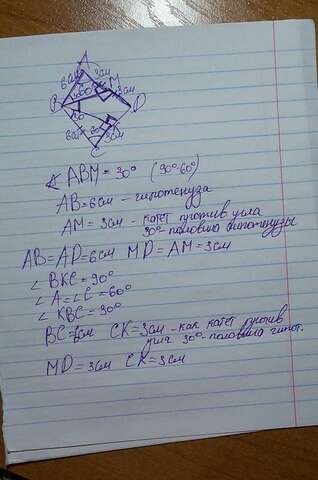 A
6см 3см
60° M
3см
B D
60
6см 60° K
3см
C
∠ ABM = 30° (90°-60°)
AB = 6см - гипотенуза
AM = 3см - катет против угла
30°-половина гипотенузы
AB = AD = 6см MD = AM = 3см
∠ BKC = 90°
∠ A = ∠ C = 60°
∠ KBC = 30°
BC = 6см CK = 3см - как катет против
угла 30°-половина гипот.
MD = 3см CK = 3см